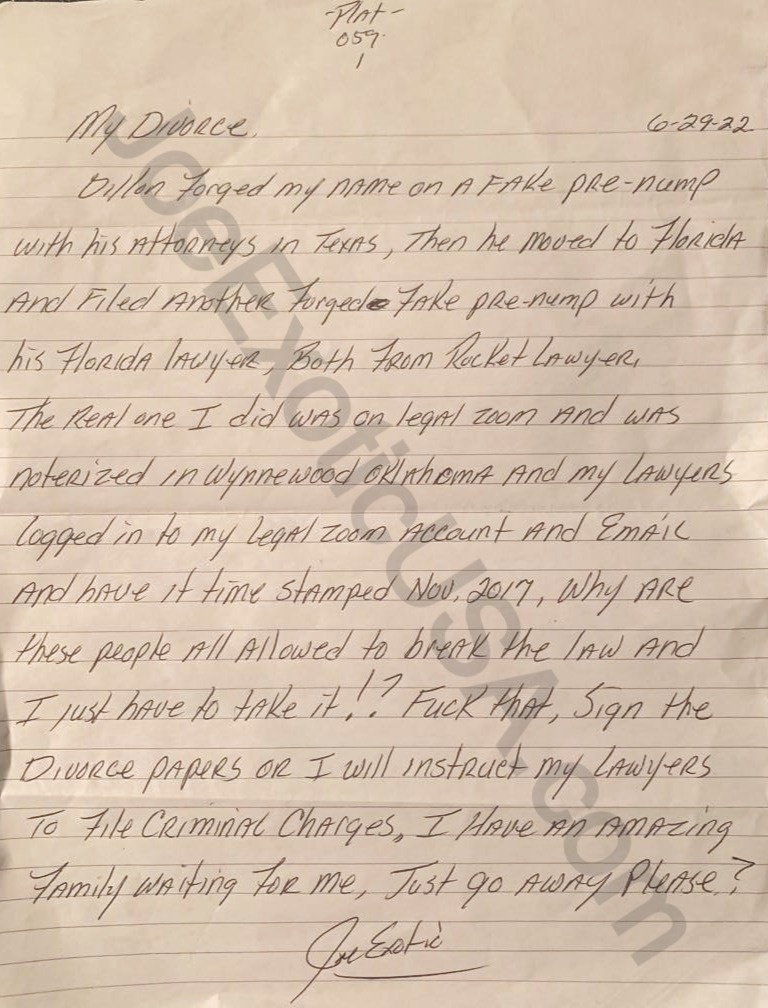 -Plat-
059
1
My Divorce.
6-29-22
Dillon Forged my name on A FAKe pre-nump
with his Attorneys in Texas, Then he moved to Florida
And Filed Another Forged Fake pre-nump with
his Florida lawyer, Both From Rocket Lawyer.
The Real one I did was on legal zoom and was
noterized in Wynnewood Oklahoma And my Lawyers
logged in to my legal zoom Account And Email
And have it time stamped Nov. 2017, Why Are
these people All Allowed to break the law And
I just have to take it!? Fuck that, Sign the
Divorce papers or I will instruct my Lawyers
To File Criminal Charges, I Have An Amazing
Family waiting For me, Just go away Please?
Joe Exotic
JoeExoticUSA.com